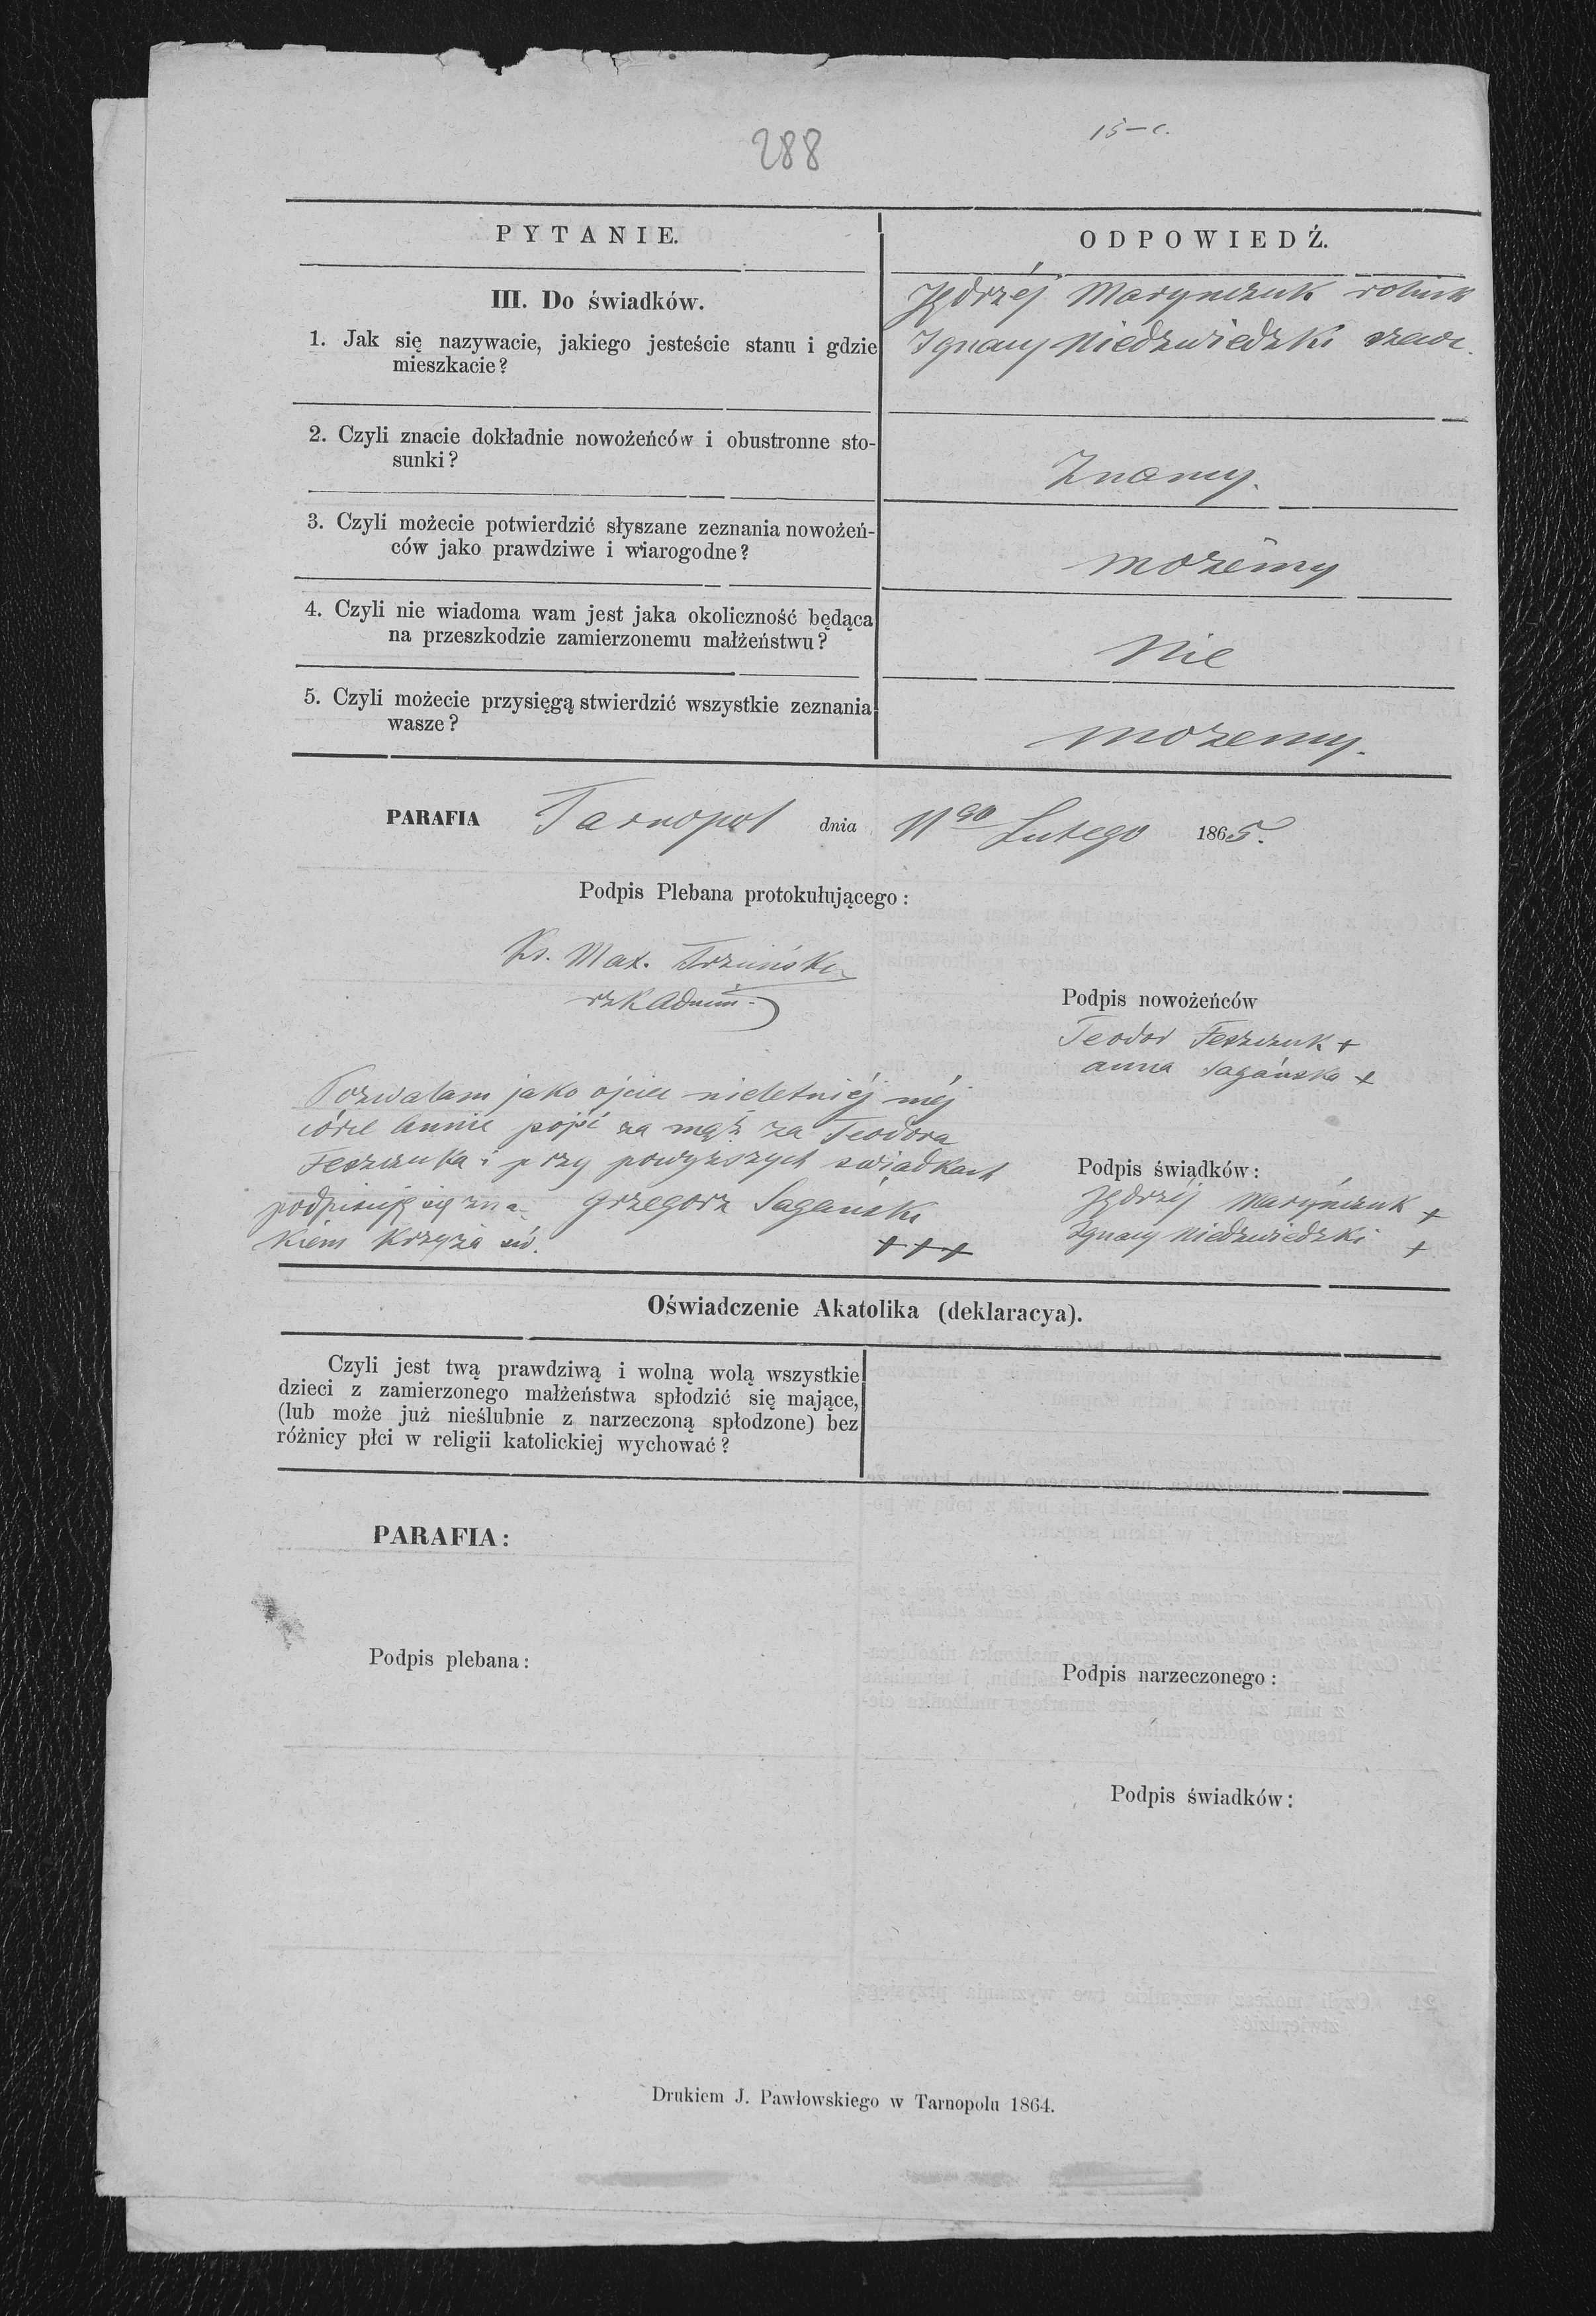 288
15-c.
PYTANIE.
ODPOWIEDŹ.
III. Do świadków.
1. Jak się nazywacie, jakiego jesteście stanu i gdzie
mieszkacie?
Jędrzéj Marynczuk rolnik
Ignacy Niedzwiedzki szewc.
2. Czyli znacie dokładnie nowożeńców i obustronne sto-
sunki?
Znamy.
3. Czyli możecie potwierdzić słyszane zeznania nowożeń-
ców jako prawdziwe i wiarogodne?
możemy
4. Czyli nie wiadoma wam jest jaka okoliczność będąca
na przeszkodzie zamierzonemu małżeństwu?
Nie
5. Czyli możecie przysięgą stwierdzić wszystkie zeznania
wasze?
możemy.
PARAFIA Tarnopol dnia 11go Lutego 1865.
Podpis Plebana protokułującego:
Ks. Max.
rzk Admin.
Podpis nowożeńców
Teodor Feszczuk +
Anna Sagańska +
Pozwalam jako ojciec nieletniéj méj
córce Annie pojść za mąż za Teodora
Feszczuka i przy powyższych swiadkach
podpisuję się zna- Grzegorz Saganski
kiem Krzyża św. +++
Podpis świadków:
Jędrzéj Maryńczuk +
Ignacy Niedzwiedzki +
Oświadczenie Akatolika (deklaracya).
Czyli jest twą prawdziwą i wolną wolą wszystkie
dzieci z zamierzonego małżeństwa spłodzić się mające,
(lub może już nieślubnie z narzeczoną spłodzone) bez
różnicy płci w religii katolickiej wychować?
PARAFIA:
Podpis plebana:
Podpis narzeczonego:
Podpis świadków:
Drukiem J. Pawłowskiego w Tarnopolu 1864.